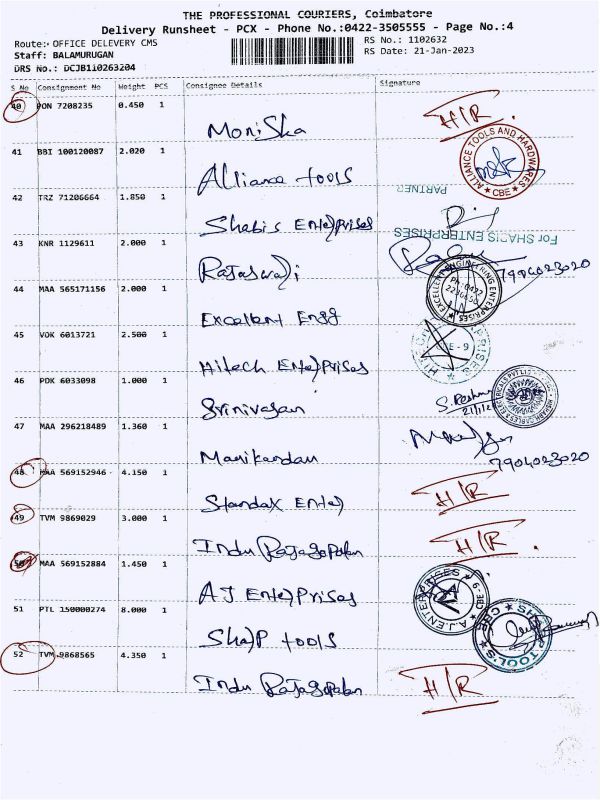 THE PROFESSIONAL COURIERS, Coimbatore
Delivery Runsheet - PCX - Phone No.:0422-3505555 - Page No.:4
Route:- OFFICE DELEVERY CMS
RS No.: 1102632
Staff: BALAMURUGAN
RS Date: 21-Jan-2023
DRS No.: DCJB110263204
S No Consignment No Weight PCS Consignee Details Signature
40 PON 7208235 0.450 1
Moniska
H/R
41 BBI 100120087 2.020 1
Alliance tools
ALLIANCE TOOLS AND HARDWARES
CBE
42 TRZ 71206664 1.850 1
PARTNER
Shabis Enterprises
For SHABIS ENTERPRISES
43 KNR 1129611 2.000 1
Rajaswaji
7904023020
44 MAA 565171156 2.000 1
Excellent Engg
EXCELLENT ENGINEERING ENTERPRISES
45 VOK 6013721 2.500 1
Hitech Enterprises
46 PDK 6033098 1.000 1
Srinivasan
47 MAA 296218489 1.360 1
Manikandan
7904023020
48 MAA 569152946 4.150 1
Standax Enter
H/R
49 TVM 9869029 3.000 1
Indu Rajagopalan
H/R
50 MAA 569152884 1.450 1
AJ Enterprises
A.J.ENTERPRISES
CBE
51 PTL 150000274 8.000 1
Sharp tools
52 TVM 9868565 4.350 1
Indu Rajagopalan
H/R